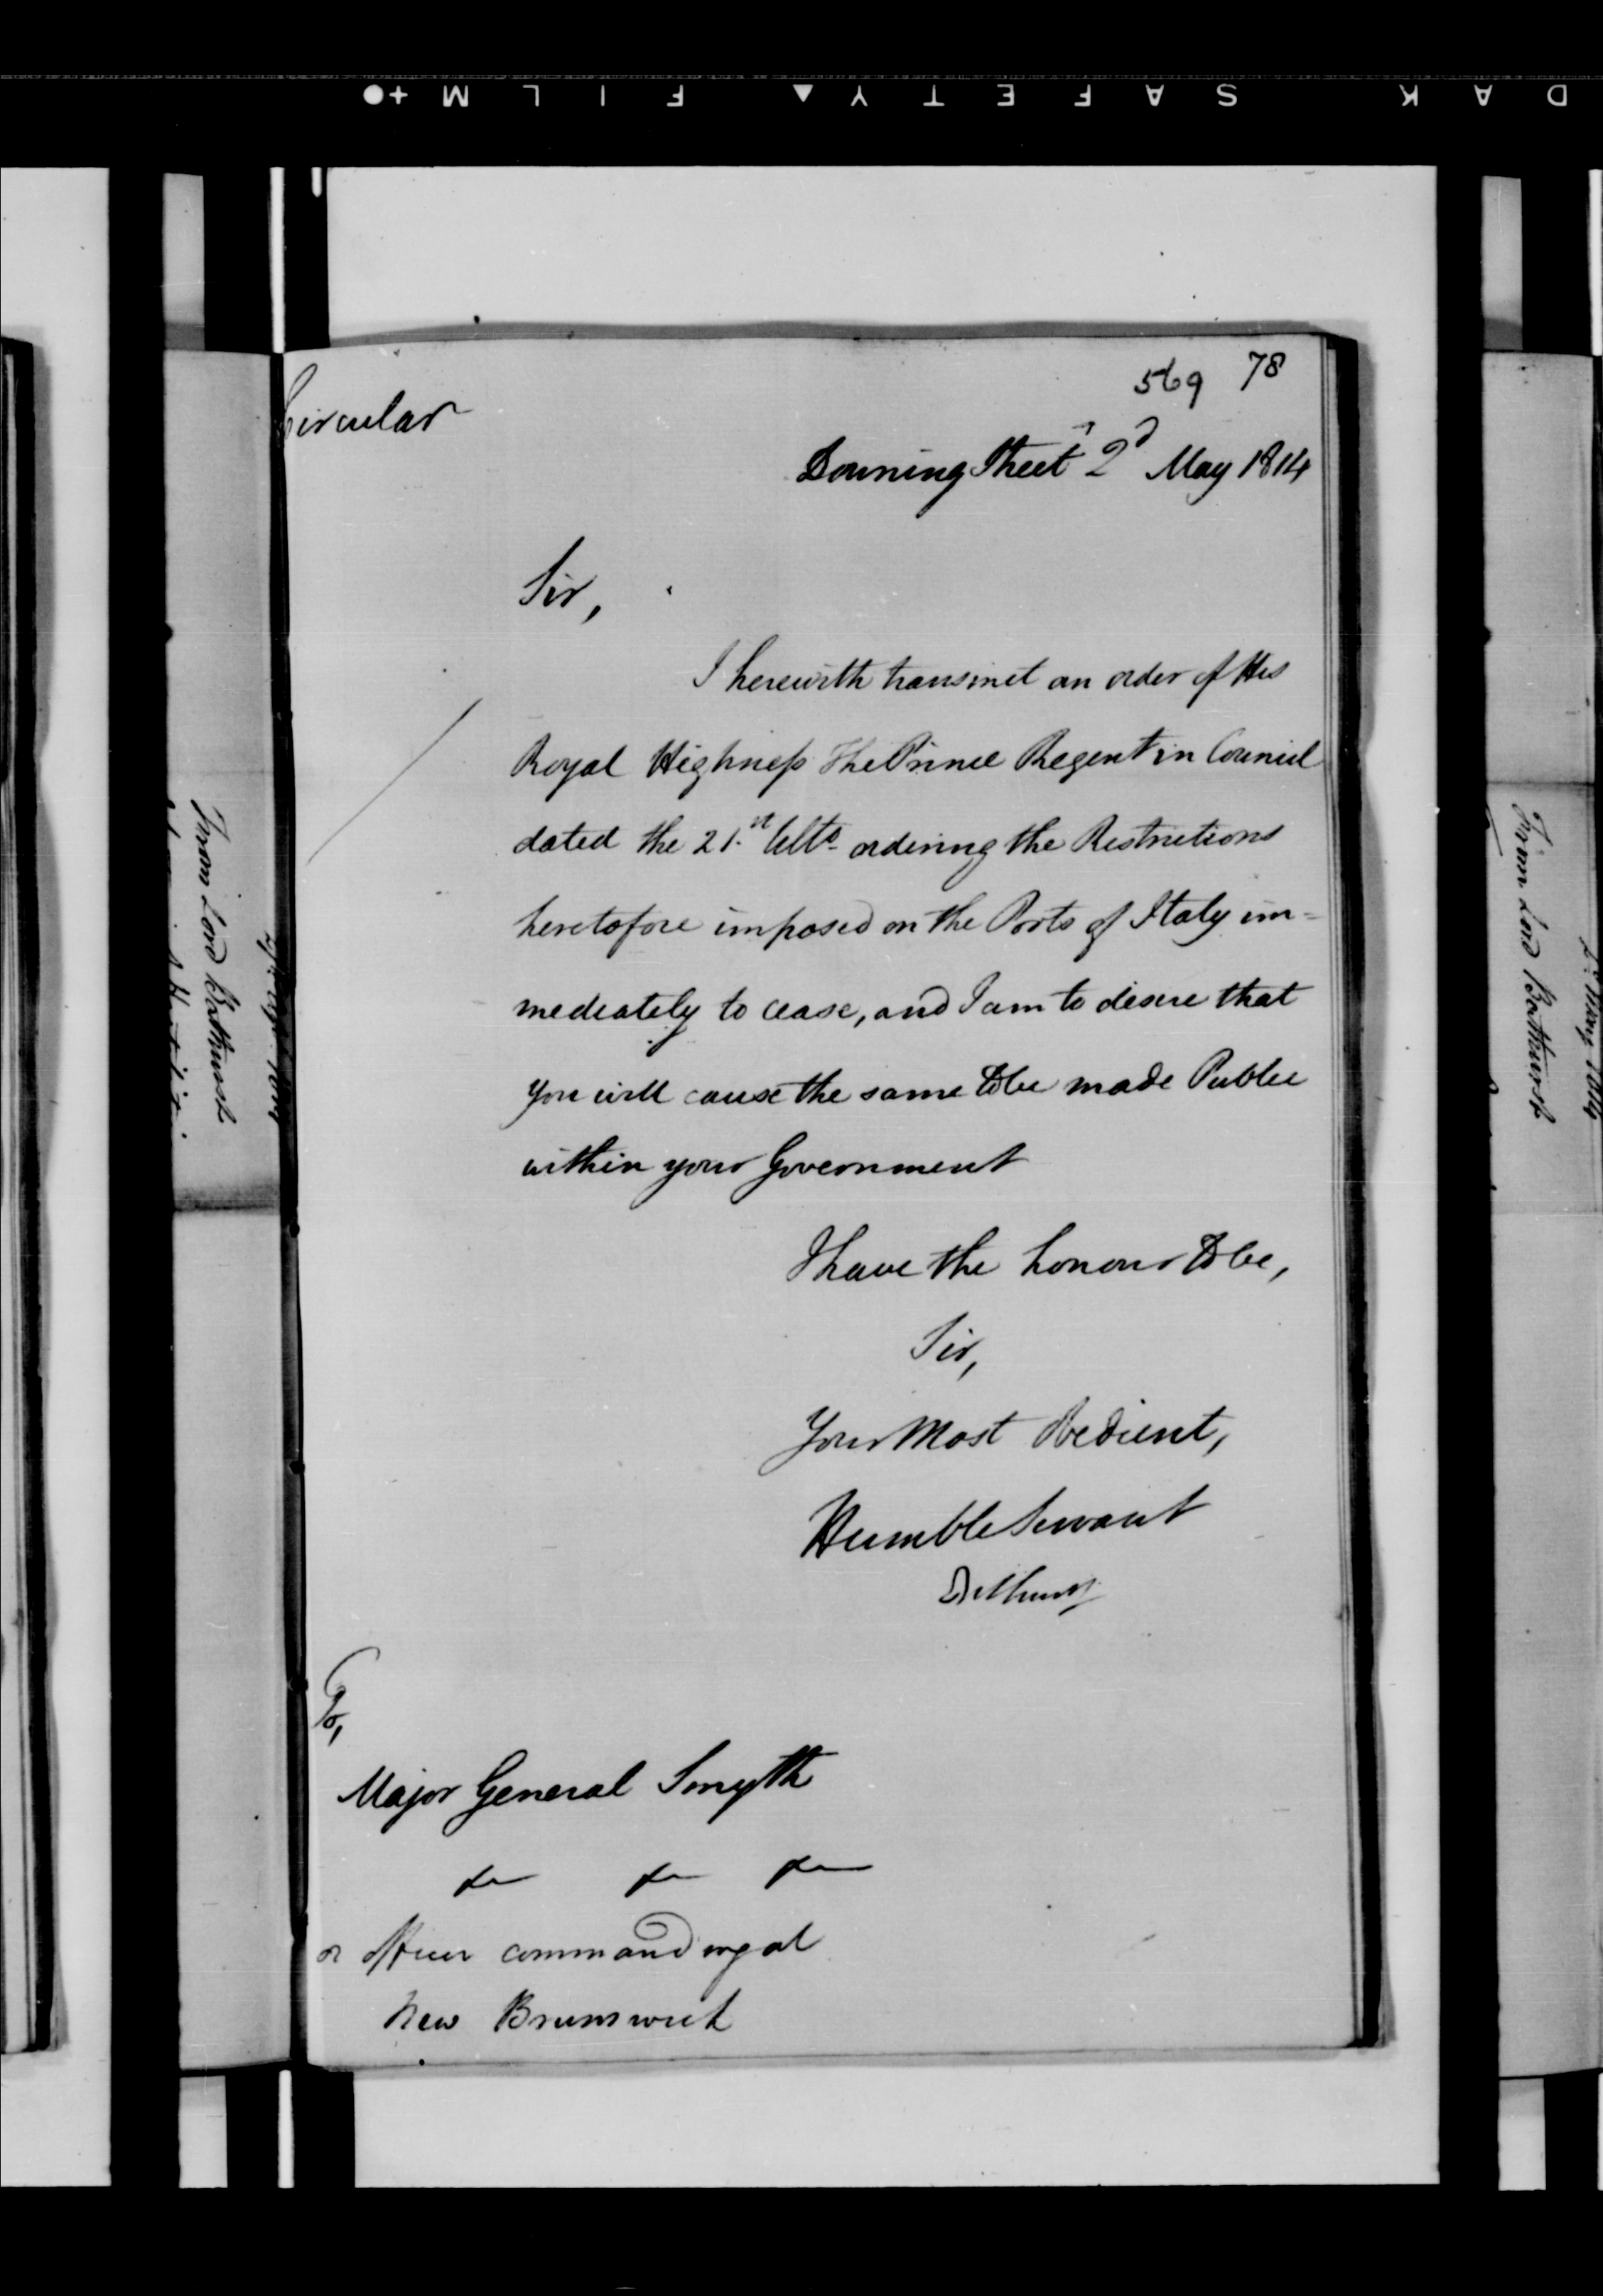 DAK SAFETY ▲ FILM +●
569 78
Circular
Downing Street 2d May 1814
Sir,
I herewith transmit an order of His
Royal Highness The Prince Regent in Council
dated the 21st Ulto ordering the Restrictions
heretofore imposed on the Ports of Italy im=
mediately to cease, and I am to desire that
you will cause the same to be made Public
within your Government
I have the honour to be,
Sir,
Your Most Obedient,
Humble Servant
Bathurst
To,
Major General Smyth
&c &c &c
or officer commanding at
New Brunswick
From Lord Bathurst
From Lord Bathurst